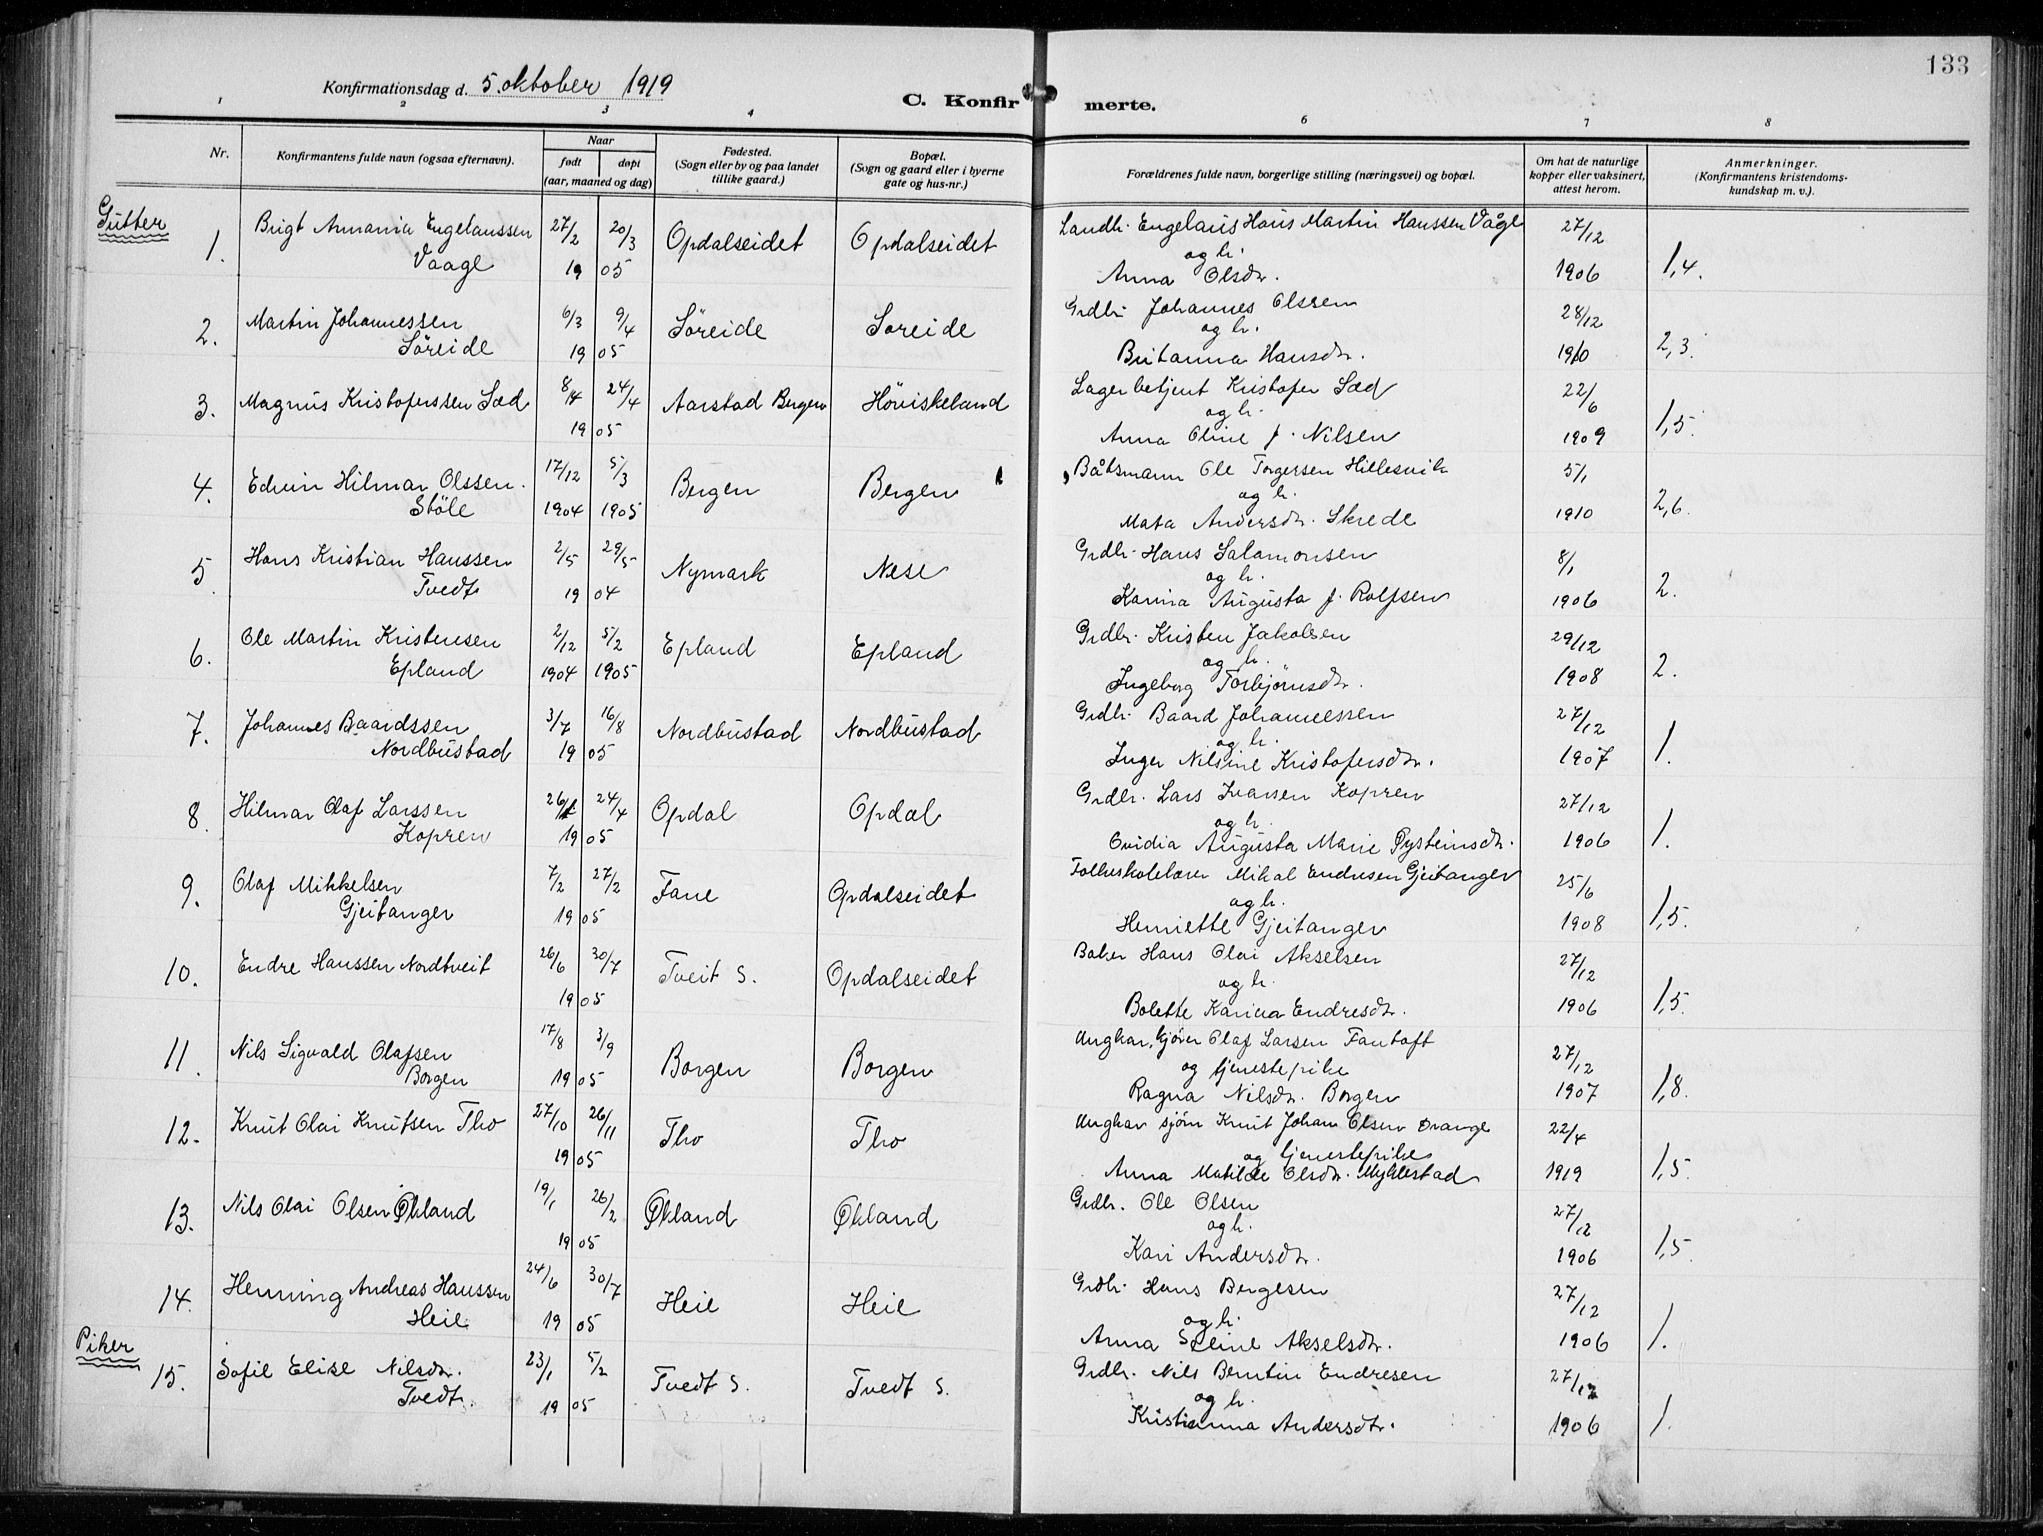 133
Konfirmationsdag d. 5. oktober 1919
C. Konfirmerte.
1 2 3 4 6 7 8
Nr.
Konfirmantens fulde navn (ogsaa efternavn).
Naar
født døpt
(aar, maaned og dag)
Fødested.
(Sogn eller by og paa landet
tillike gaard.)
Bopæl.
(Sogn og gaard eller i byerne
gate og hus-nr.)
Forældrenes fulde navn, borgerlige stilling (næringsvei) og bopæl.
Om hat de naturlige
kopper eller vaksinert,
attest herom.
Anmerkninger.
(Konfirmantens kristendoms-
kundskap m. v.).
Gutter
1. Brigt Annania Engelaussen 27/2 20/3 Opdalseidet Opdalseidet Landh. Engelaus Hans Martin Hanssen Våge 27/12
Vaage 19 05 og h. 1906 1,4.
Anna Olsdr.
2. Martin Johannessen 6/3 9/4 Söreide Soreide Grdbr. Johannes Olssen 28/12
Söreide 19 05 og h. 1910 2,3.
Britanna Hansdr.
3. Magnus Kristoferssen Sæd 8/4 24/4 Aarstad Bergen Höviskeland Lagerbetjent Kristofer Sæd 22/6
19 05 og h. 1909 1,5.
Anna Oline f. Nilsen
4. Edvin Hilmar Olssen 17/12 5/3 Bergen Bergen Båtsmann Ole Torgersen Hillesvik 5/1
Stöle 1904 1905 og h. 1910 2,6.
Mata Andersdr. Skrede
5. Hans Kristian Hanssen 2/5 29/5 Nymark Nese Grdbr. Hans Salamonsen 8/1
Tvedt 19 04 og h. 1906 2.
Karina Augusta f. Rolfsen
6. Ole Martin Kristensen 2/12 5/2 Epland Epland Grdbr. Kristen Jakobsen 29/12
Epland 1904 1905 og h. 1908 2.
Ingeborg Torbjörnsdr.
7. Johannes Baardssen 3/7 16/8 Nordbustad Nordbustad Grdbr. Baard Johannessen 27/12
Nordbustad 19 05 og h. 1907 1.
Inger Nilsine Kristofersdr.
8. Hilmar Olaf Larssen 26/ 24/4 Opdal Opdal Grdbr. Lars Ivarsen Kopren 27/12
Kopren 19 05 og h. 1906 1.
Ovidia Augusta Marie Øysteinsdr.
9. Olaf Mikkelsen 7/2 27/2 Fane Opdalseidet Folkeskolelærer Mikal Endresen Gjeitanger 25/6
Gjeitanger 19 05 og h. 1908 1,5.
Henriette Gjeitanger
10. Endre Hanssen Nordtveit 26/6 30/7 Tveit S. Opdalseidet Baker Hans Olai Akselsen 27/12
19 05 og h. 1906 1,5.
Bolette Karina Endresdr.
11. Nils Sigvald Olafsen 17/8 3/9 Borgen Borgen Ungkar, kjörer Olaf Larsen Fantoft 27/12
Borgen 19 05 og tjenestepike 1907 1,8.
Ragna Nilsdr. Borgen
12. Knut Olai Knutsen Tho 27/10 26/11 Tho Tho Ungkar sjöm Knut Johan Olsen Drange 22/4
19 05 og tjenestepike 1919 1,5.
Anna Matilde Olsdr. Myklestad
13. Nils Olai Olsen Økland 19/1 26/2 Økland Økland Grdbr. Ole Olsen 27/12
19 05 og h. 1906 1,5.
Kari Andersdr.
14. Henning Andreas Hanssen 24/6 30/7 Heie Heie Grdbr. Hans Bergesen 27/12
Heie 19 05 og h. 1906 1.
Anna Seline Akselsdr.
Piker
15. Sofie Elise Nilsdr. 23/1 5/2 Tvedt S. Tvedt S. Grdbr. Nils Berntin Endresen 27/12
Tvedt. 19 05 og h. 1906 1.
Kristianna Andersdtr.